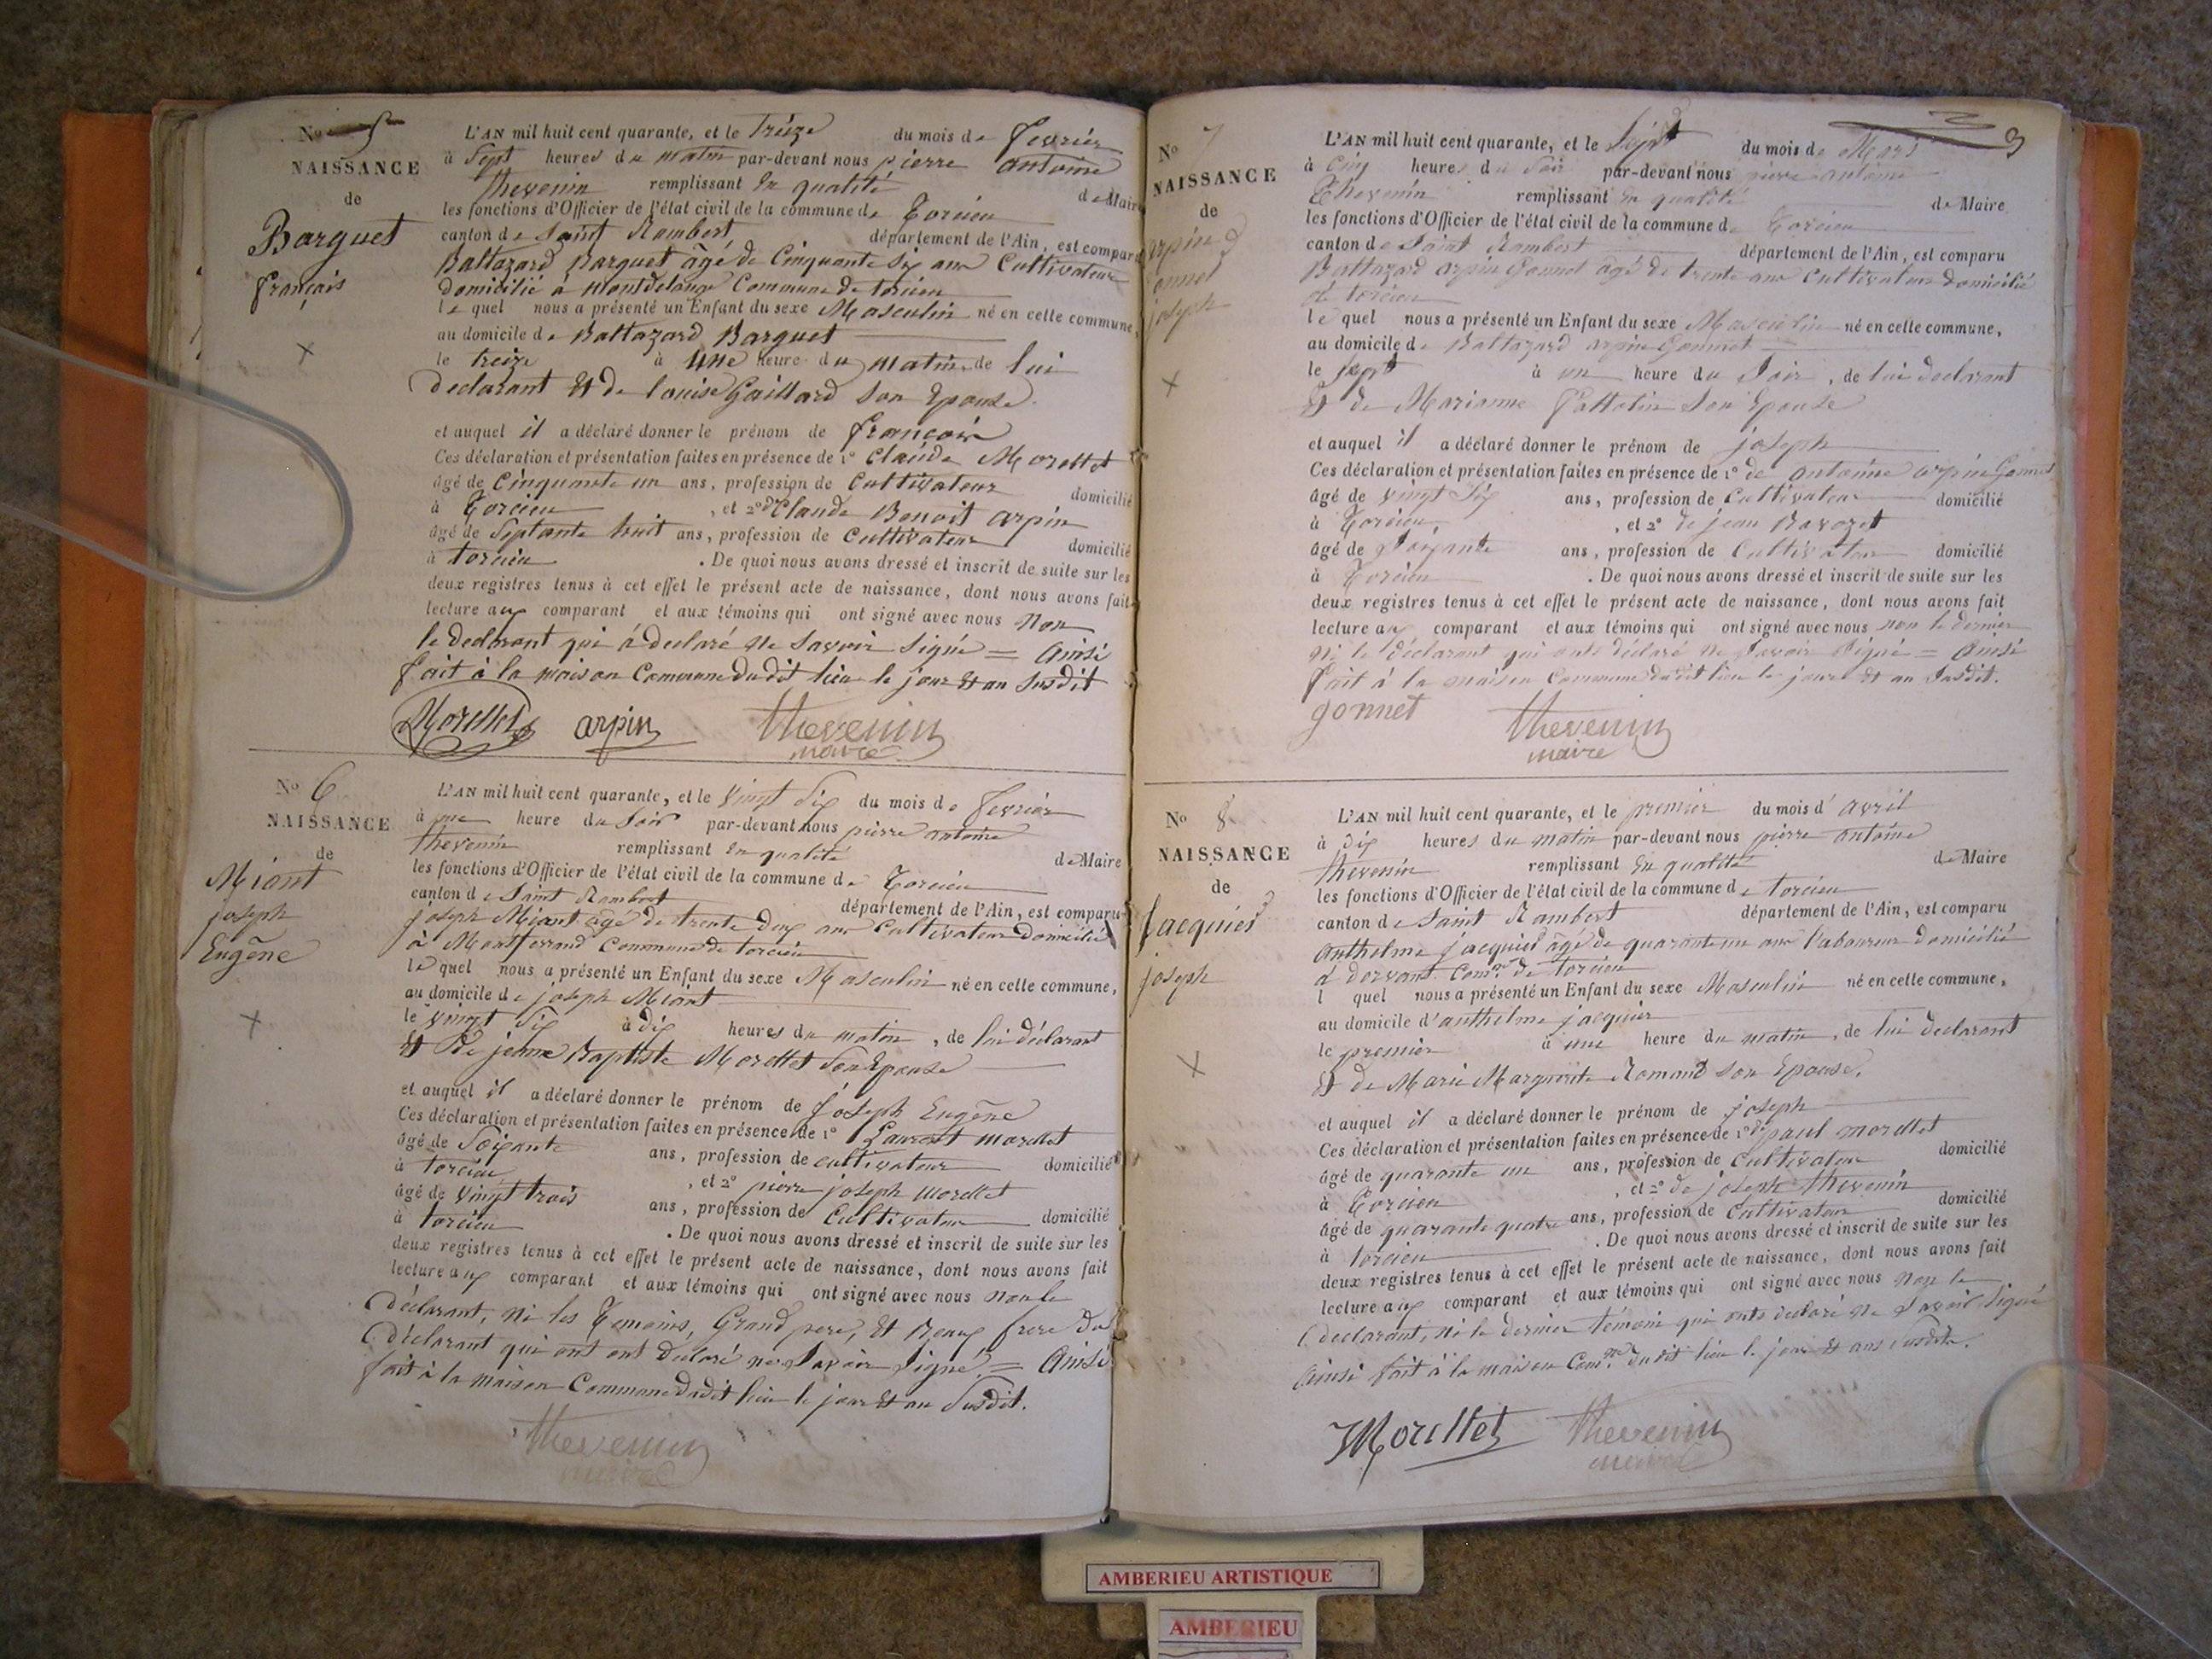 No 5
NAISSANCE
de
Barguet
françois
L'AN mil huit cent quarante, et le Treize du mois de fevrier
à Sept heures du matin par-devant nous pierre antoine
thevenin remplissant En qualité de Maire
les fonctions d'Officier de l'état civil de la commune de Torcieu
canton de Saint Rambert département de l'Ain, est comparu
Baltazard Barguet âgé de Cinquante Six ans Cultivateur
domicilié a montdelange Commune de torcieu
le quel nous a présenté un Enfant du sexe Masculin né en cette commune,
au domicile de Baltazard Barguet
le treize à une heure du matin de lui
declarant Et de louise Gaillard son Epouse.
et auquel il a déclaré donner le prénom de françois
Ces déclaration et présentation faites en présence de 1° claude Morellet
âgé de Cinquante un ans, profession de Cultivateur domicilié
à Torcieu, et 2° de Claude Benoit arpin
âgé de Septante huit ans, profession de Cultivateur domicilié
à torcieu. De quoi nous avons dressé et inscrit de suite sur les
deux registres tenus à cet effet le présent acte de naissance, dont nous avons fait
lecture aux comparant et aux témoins qui ont signé avec nous Non
le declarant qui à declaré ne savoir signé = Ainsi
fait à la maison Commune dudit lieu le jour Et an susdit
Morellet arpin thevenin
maire
No 6
NAISSANCE
de
Miant
joseph
Eugêne
L'AN mil huit cent quarante, et le vingt Six du mois de fevrier
à une heure du Soir par-devant nous pierre antoine
thevenin remplissant En qualité de Maire
les fonctions d'Officier de l'état civil de la commune de Torcieu
canton de Saint Rambert département de l'Ain, est comparu
joseph Miant âgé de trente deux ans Cultivateur domicilié
à Montferrand Commune de torcieu
le quel nous a présenté un Enfant du sexe Masculin né en cette commune,
au domicile de joseph Miant
le vingt Six à dix heures du matin, de lui déclarant
Et de jeanne Baptiste Morellet Son Epouse
et auquel il a déclaré donner le prénom de joseph Eugêne
Ces déclaration et présentation faites en présence de 1° Laurent morellet
âgé de Soixante ans, profession de cultivateur domicilié
à torcieu, et 2° pierre joseph morellet
âgé de vingt trois ans, profession de Cultivateur domicilié
à torcieu. De quoi nous avons dressé et inscrit de suite sur les
deux registres tenus à cet effet le présent acte de naissance, dont nous avons fait
lecture aux comparant et aux témoins qui ont signé avec nous non le
déclarant, ni les Temoins, Grand pere, Et Beau frere du
déclarant qui ont ont declaré ne Savoir Signé = Ainsi
fait à la maison Commune dudit lieu le jour Et an Susdit.
thevenin
maire
3
No 7
NAISSANCE
de
arpin
Gonnet
joseph
L'AN mil huit cent quarante, et le Sept du mois de Mars
à cinq heures du Soir par-devant nous pierre antoine
Thevenin remplissant En qualité de Maire
les fonctions d'Officier de l'état civil de la commune de Torcieu
canton de Saint Rambert département de l'Ain, est comparu
Baltazard arpin Gonnet âgé de trente ans Cultivateur domicilié
à torcieu
le quel nous a présenté un Enfant du sexe Masculin né en cette commune,
au domicile de Baltazard arpin Gonnet
le sept à un heure du Soir, de lui declarant
Et de Marianne Pattotin Son Epouse
et auquel il a déclaré donner le prénom de joseph
Ces déclaration et présentation faites en présence de 1° de antoine arpin Gonnet
âgé de vingt Six ans, profession de Cultivateur domicilié
à Torcieu, et 2° de jean Ravozet
âgé de Soixante ans, profession de Cultivateur domicilié
à Torcieu. De quoi nous avons dressé et inscrit de suite sur les
deux registres tenus à cet effet le présent acte de naissance, dont nous avons fait
lecture aux comparant et aux témoins qui ont signé avec nous non le dernier
ni le déclarant qui onts déclaré ne Savoir Signé = Ainsi
fait à la maison Commune dudit lieu le jour Et an Susdit.
gonnet thevenin
maire
No 8
NAISSANCE
de
Jacquier
joseph
L'AN mil huit cent quarante, et le premier du mois d'avril
à dix heures du matin par-devant nous pierre antoine
thevenin remplissant En qualité de Maire
les fonctions d'Officier de l'état civil de la commune de torcieu
canton de Saint Rambert département de l'Ain, est comparu
Anthelme jacquier âgé de quarante un ans laboureur domicilié
à dorvant Comne de Torcieu
l quel nous a présenté un Enfant du sexe Masculin né en cette commune,
au domicile d'anthelme jacquier
le premier à une heure du matin, de lui declarant
Et de Marie Margueritte Romand son Epouse.
et auquel il a déclaré donner le prénom de joseph
Ces déclaration et présentation faites en présence de 1° de paul morellet
âgé de quarante un ans, profession de Cultivateur domicilié
à Torcieu, et 2° de joseph thevenin
âgé de quarante quatre ans, profession de Cultivateur domicilié
à torcieu. De quoi nous avons dressé et inscrit de suite sur les
deux registres tenus à cet effet le présent acte de naissance, dont nous avons fait
lecture aux comparant et aux témoins qui ont signé avec nous non le
declarant, ni le dernier témoin qui onts declaré ne Savoir Signé
Ainsi fait à la maison Comne dudit lieu le jour Et ans susdits.
Morellet thevenin
maire
AMBERIEU ARTISTIQUE
AMBERIEU